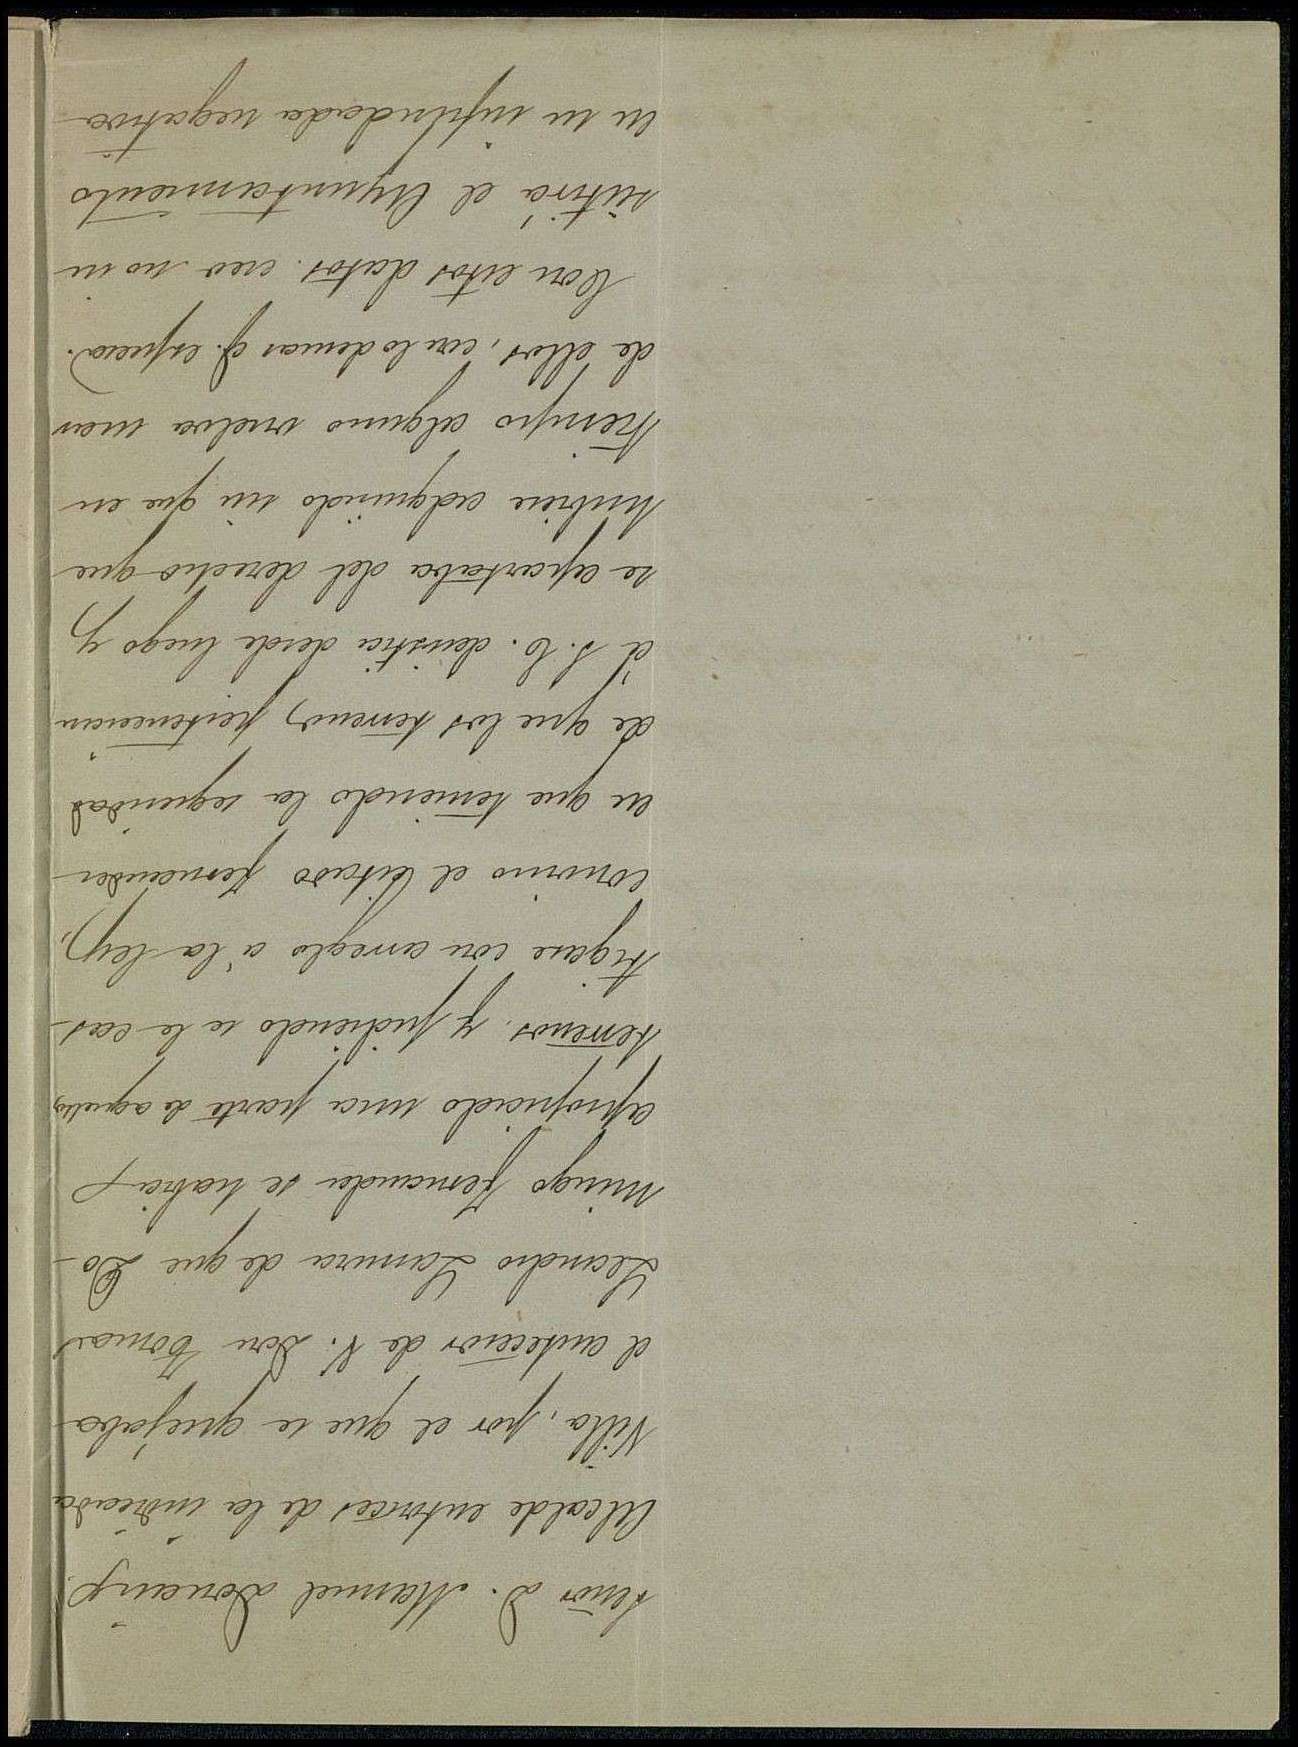 señor D. Manuel Doncang,
Alcalde entonces de la indicada
Villa, por el que se quejaba
el antecesor de V. Don Tomas
Leandro Lamura de que Do-
mingo Fernandez se habia
apropiado una parte de aquellos
terrenos, y pidiendo se le cas-
tigase con arreglo a' la ley,
convino el citado Fernandez
en que teniendo la seguridad
de que los terrenos pertenecian
a' S. E. desistia desde luego y
se apartaba del derecho que
hubiese adquirido sin que en
tiempo alguno vuelva usar
de ellos, con lo demas q. espresa.
Con estos datos creo no in
sistirá el Ayuntamiento
en su infundada negativa